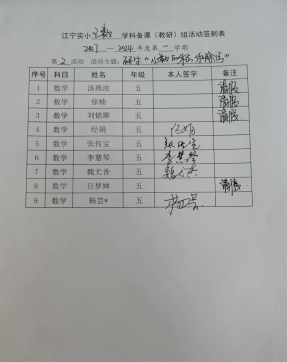 江宁实小 数学 学科备课（教研）组活动签到表
2023 —2024 年度第 二 学期
第 2 活动 活动主题：研讨“小数
序号 科目 姓名 年级 本人签字 备注
1 数学 汤燕波 五
2 数学 徐楠 五
3 数学 刘铭卿 五
4 数学 经娟 五 经娟
5 数学 张传宝 五 张传宝
6 数学 李慧琴 五 李慧琴
7 数学 魏尤香 五 魏尤香
8 数学 吕梦婵 五
9 数学 杨芸* 五 杨芸